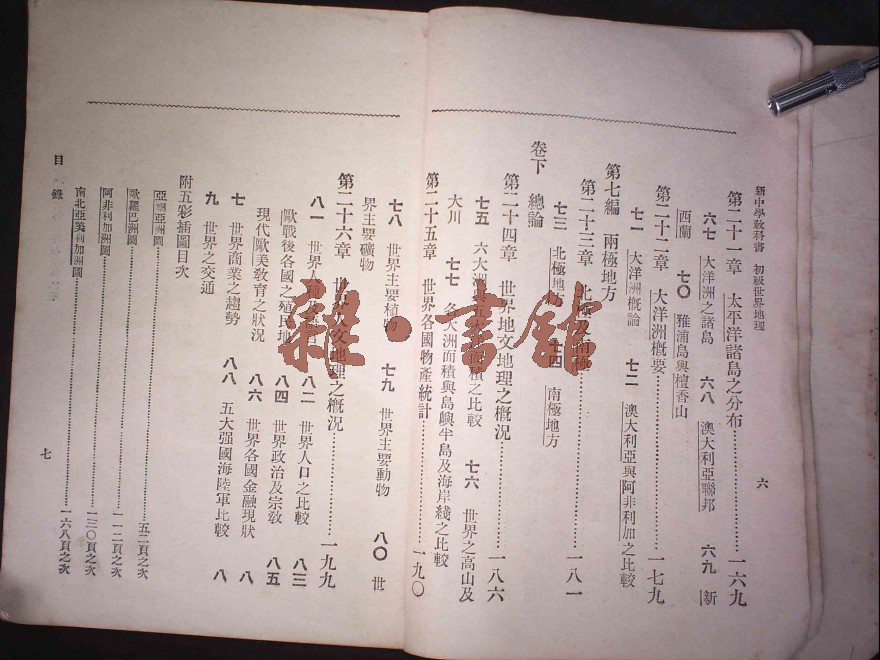 新中學教科書 初級世界地理 六
第二十一章 太平洋諸島之分布 一六九
六七 大洋洲之諸島 六八 澳大利亞聯邦 六九 新
西蘭 七〇 雅浦島與檀香山
第二十二章 大洋洲概要 一七九
七一 大洋洲概論 七二 澳大利亞與阿非利加之比較
第七編 兩極地方
第二十三章 北極及南極 一八一
七三 北極地方 七四 南極地方
卷下 總論
第二十四章 世界地文地理之概況 一八六
七五 六大洲與五大洋面積之比較 七六 世界之高山及
大川 七七 各大洲面積與島嶼半島及海岸綫之比較
第二十五章 世界各國物產統計 一九〇
七八 世界主要植物 七九 世界主要動物 八〇 世
界主要礦物
第二十六章 世界人文地理之概況 一九九
八一 世界人種及 八二 世界人口之比較 八三
歐戰後各國之殖民地 八四 世界政治及宗教 八五
現代歐美教育之狀況 八六 世界各國金融現狀 八
七 世界商業之趨勢 八八 五大强國海陸軍比較 八
九 世界之交通
附五彩插圖目次
亞細亞洲圖 五二頁之次
歐羅巴洲圖 一一二頁之次
阿非利加洲圖 一三〇頁之次
南北亞美利加洲圖 一六八頁之次
目 錄 七
雜·書館